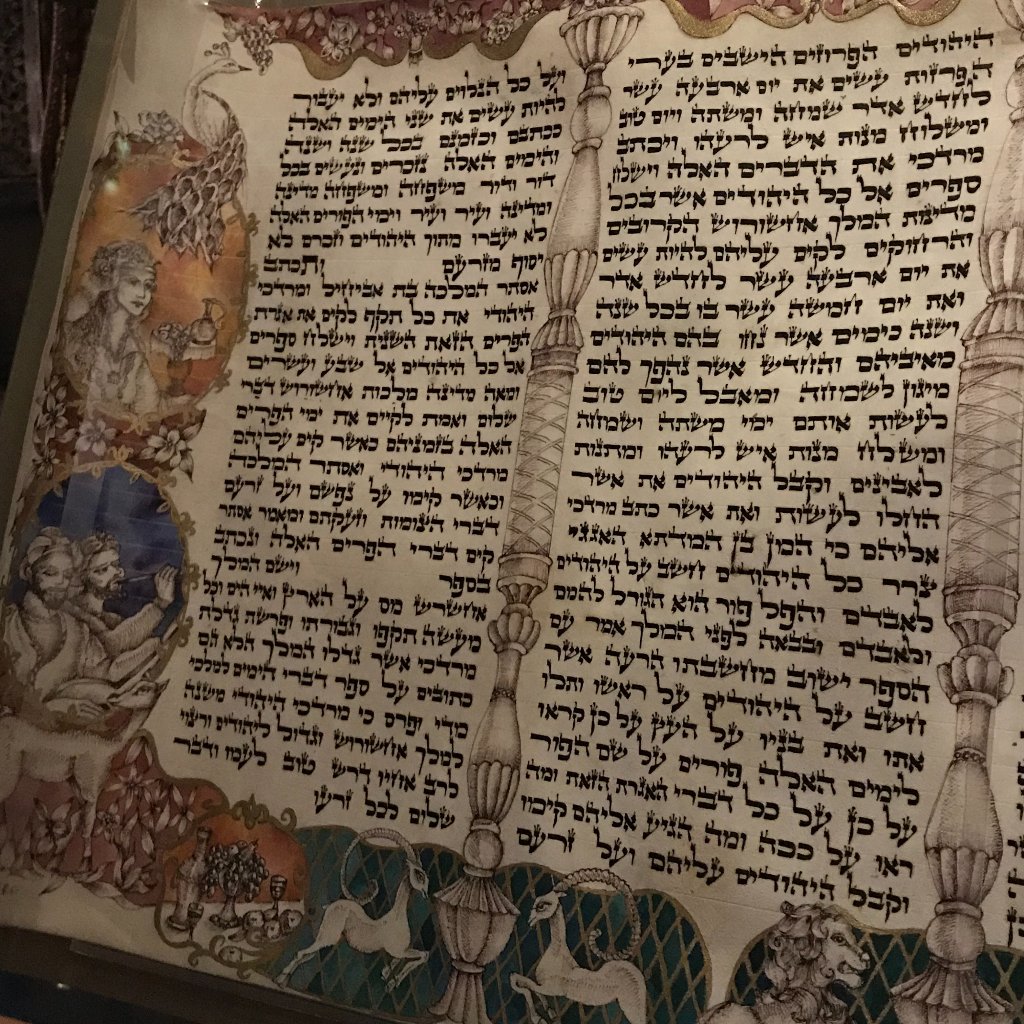 היהודים הפרוזים הישבים בערי
הפרזות עשים את יום ארבעה עשר
לחדש אדר שמחה ומשתה ויום טוב
ומשלוח מנות איש לרעהו ויכתב
מרדכי את הדברים האלה וישלח
ספרים אל כל היהודים אשר בכל
מדינות המלך אחשורוש הקרובים
והרחוקים לקים עליהם להיות עשים
את יום ארבעה עשר לחדש אדר
ואת יום חמשה עשר בו בכל שנה
ושנה כימים אשר נחו בהם היהודים
מאיביהם והחדש אשר נהפך להם
מיגון לשמחה ומאבל ליום טוב
לעשות אותם ימי משתה ושמחה
ומשלח מנות איש לרעהו ומתנות
לאבינים וקבל היהודים את אשר
החלו לעשות ואת אשר כתב מרדכי
אליהם כי המן בן המדתא האגגי
צרר כל היהודים חשב על היהודים
לאבדם והפל פור הוא הגורל להמם
ולאבדם ובבאה לפני המלך אמר עם
הספר ישוב מחשבתו הרעה אשר
חשב על היהודים על ראשו ותלו
אתו ואת בניו על העץ על כן קראו
לימים האלה פורים על שם הפור
על כן על כל דברי האגרת הזאת ומה
ראו על ככה ומה הגיע אליהם קימו
וקבל היהודים עליהם ועל זרעם
ועל כל הנלוים עליהם ולא יעבור
להיות עשים את שני הימים האלה
ככתבם וכזמנם בכל שנה ושנה
והימים האלה נזכרים ונעשים בכל
דור ודור משפחה ומשפחה מדינה
ומדינה ועיר ועיר וימי הפורים האלה
לא יעברו מתוך היהודים וזכרם לא
יסוף מזרעם ותכתב
אסתר המלכה בת אביחיל ומרדכי
היהודי את כל תקף לקים את אגרת
הפרים הזאת השנית וישלח ספרים
אל כל היהודים אל שבע ועשרים
ומאה מדינה מלכות אחשורוש דברי
שלום ואמת לקים את ימי הפרים
האלה בזמניהם כאשר קים עליהם
מרדכי היהודי ואסתר המלכה
וכאשר קימו על נפשם ועל זרעם
דברי הצומות וזעקתם ומאמר אסתר
קים דברי הפרים האלה ונכתב
בספר וישם המלך
אחשרש מס על הארץ ואיי הים וכל
מעשה תקפו וגבורתו ופרשת גדלת
מרדכי אשר גדלו המלך הלא הם
כתובים על ספר דברי הימים למלכי
מדי ופרס כי מרדכי היהודי משנה
למלך אחשורוש וגדול ליהודים ורצוי
לרב אחיו דרש טוב לעמו ודבר
שלום לכל זרעו